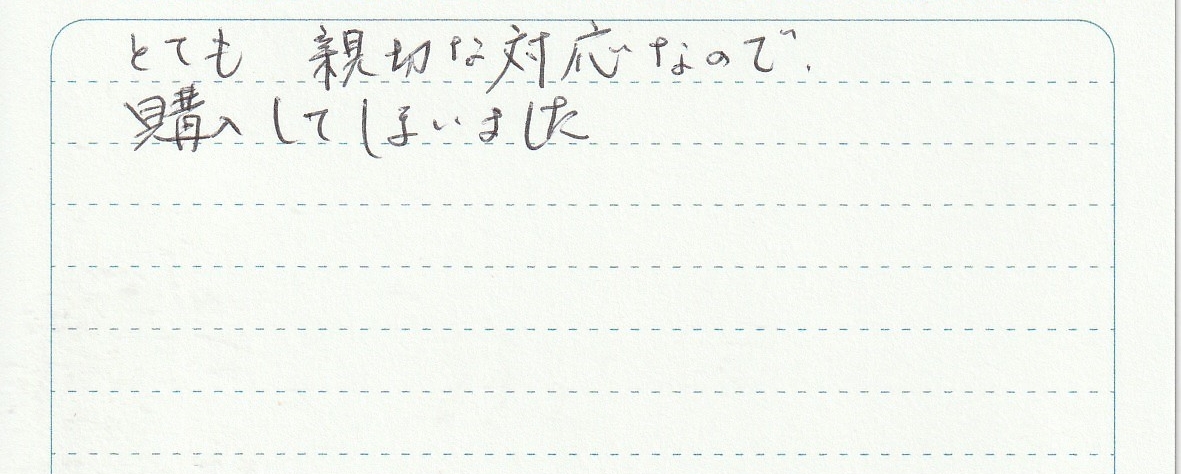 とても 親切な対応なので、
購入してしまいました